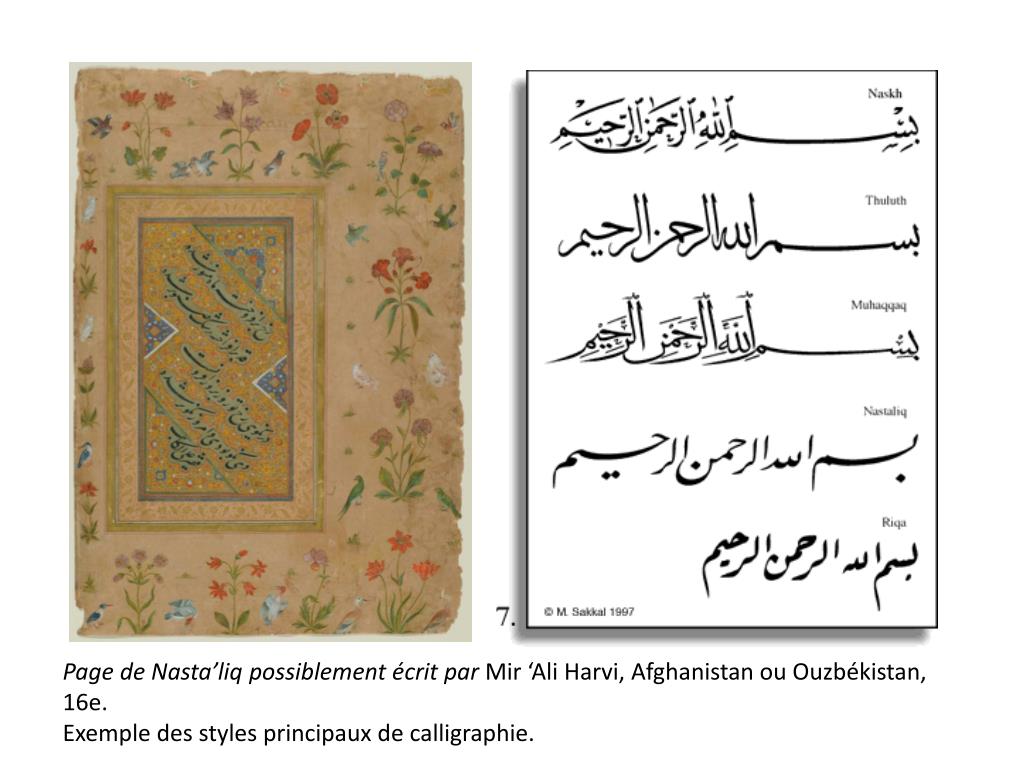 Naskh
بِسْمِ اللهِ الرَّحْمٰنِ الرَّحِيْمِ
Thuluth
بسم الله الرحمن الرحيم
Muhaqqaq
بِسْمِ اللهِ الرَّحْمٰنِ الرَّحِيْمِ
Nastaliq
بسم الله الرحمن الرحيم
Riqa
بسم الله الرحمن الرحيم
7.
© M. Sakkal 1997
Page de Nasta’liq possiblement écrit par Mir ‘Ali Harvi, Afghanistan ou Ouzbékistan,
16e.
Exemple des styles principaux de calligraphie.